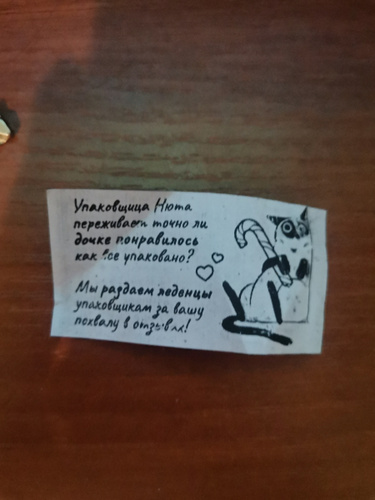 Упаковщица Нюта
переживает точно ли
дочке понравилось
как все упаковано?
Мы раздаем леденцы
упаковщикам за вашу
похвалу в отзывах!